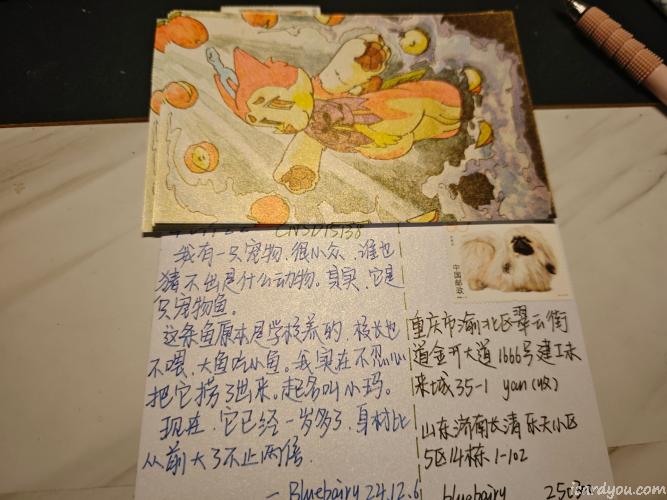 CNSD15138
我有一只宠物,很小众,谁也
猜不出是什么动物。其实,它是
只宠物鱼。
这条鱼原本是学校养的,校长也
不喂,大鱼吃小鱼。我实在不忍心
把它捞了出来。起名叫小玛。
现在,它已经一岁多了,身材比
从前大了不止两倍.
— Bluebairy 24.12.6
中国邮政
重庆市渝北区翠云街
道金开大道1666号建工未
来城35-1 yan(女)
山东济南长清乐天小区
5区14栋1-102
bluebairy
icardyou.com